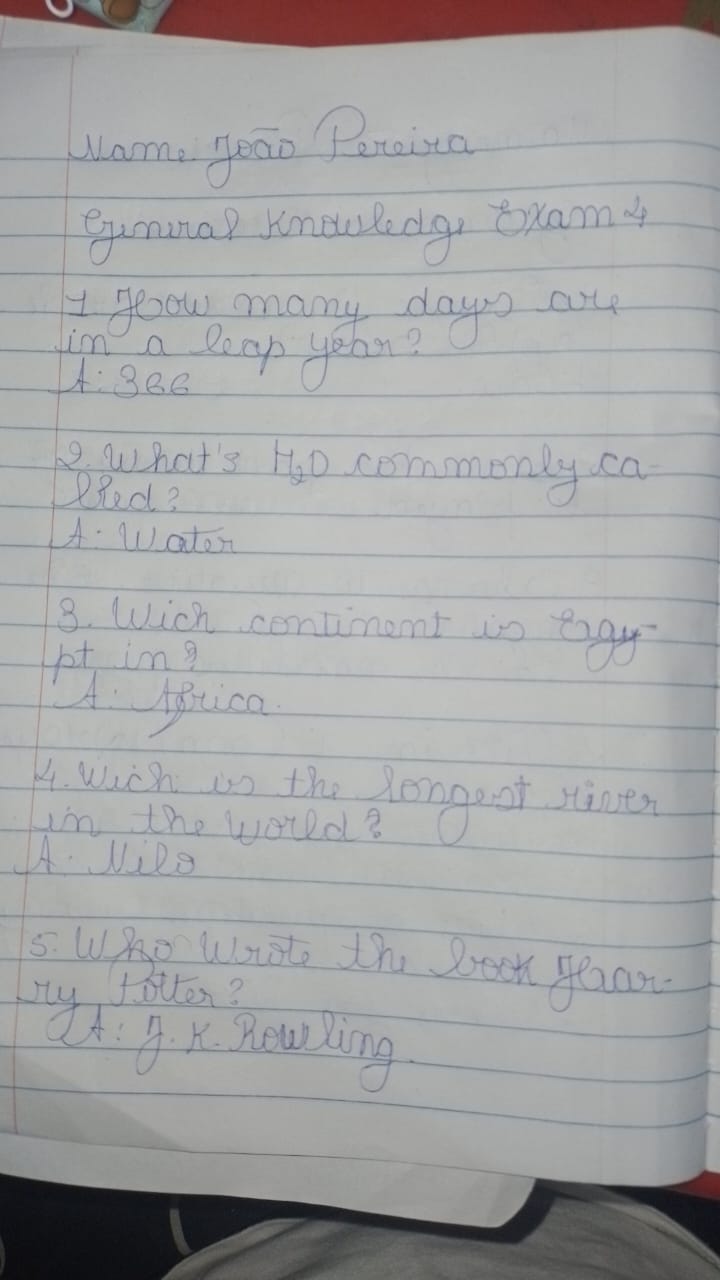 Name João Pereira
General Knowledge Exam 4
1 How many days are
in a leap year?
A: 366
2. What's H₂O commonly ca-
lled?
A: Water
3. Wich continent is Egy-
pt in?
A: Africa.
4. Wich is the longest river
in the world?
A. Nilo
5. Who wrote the book Har-
ry Potter?
A: J. K. Rowling.